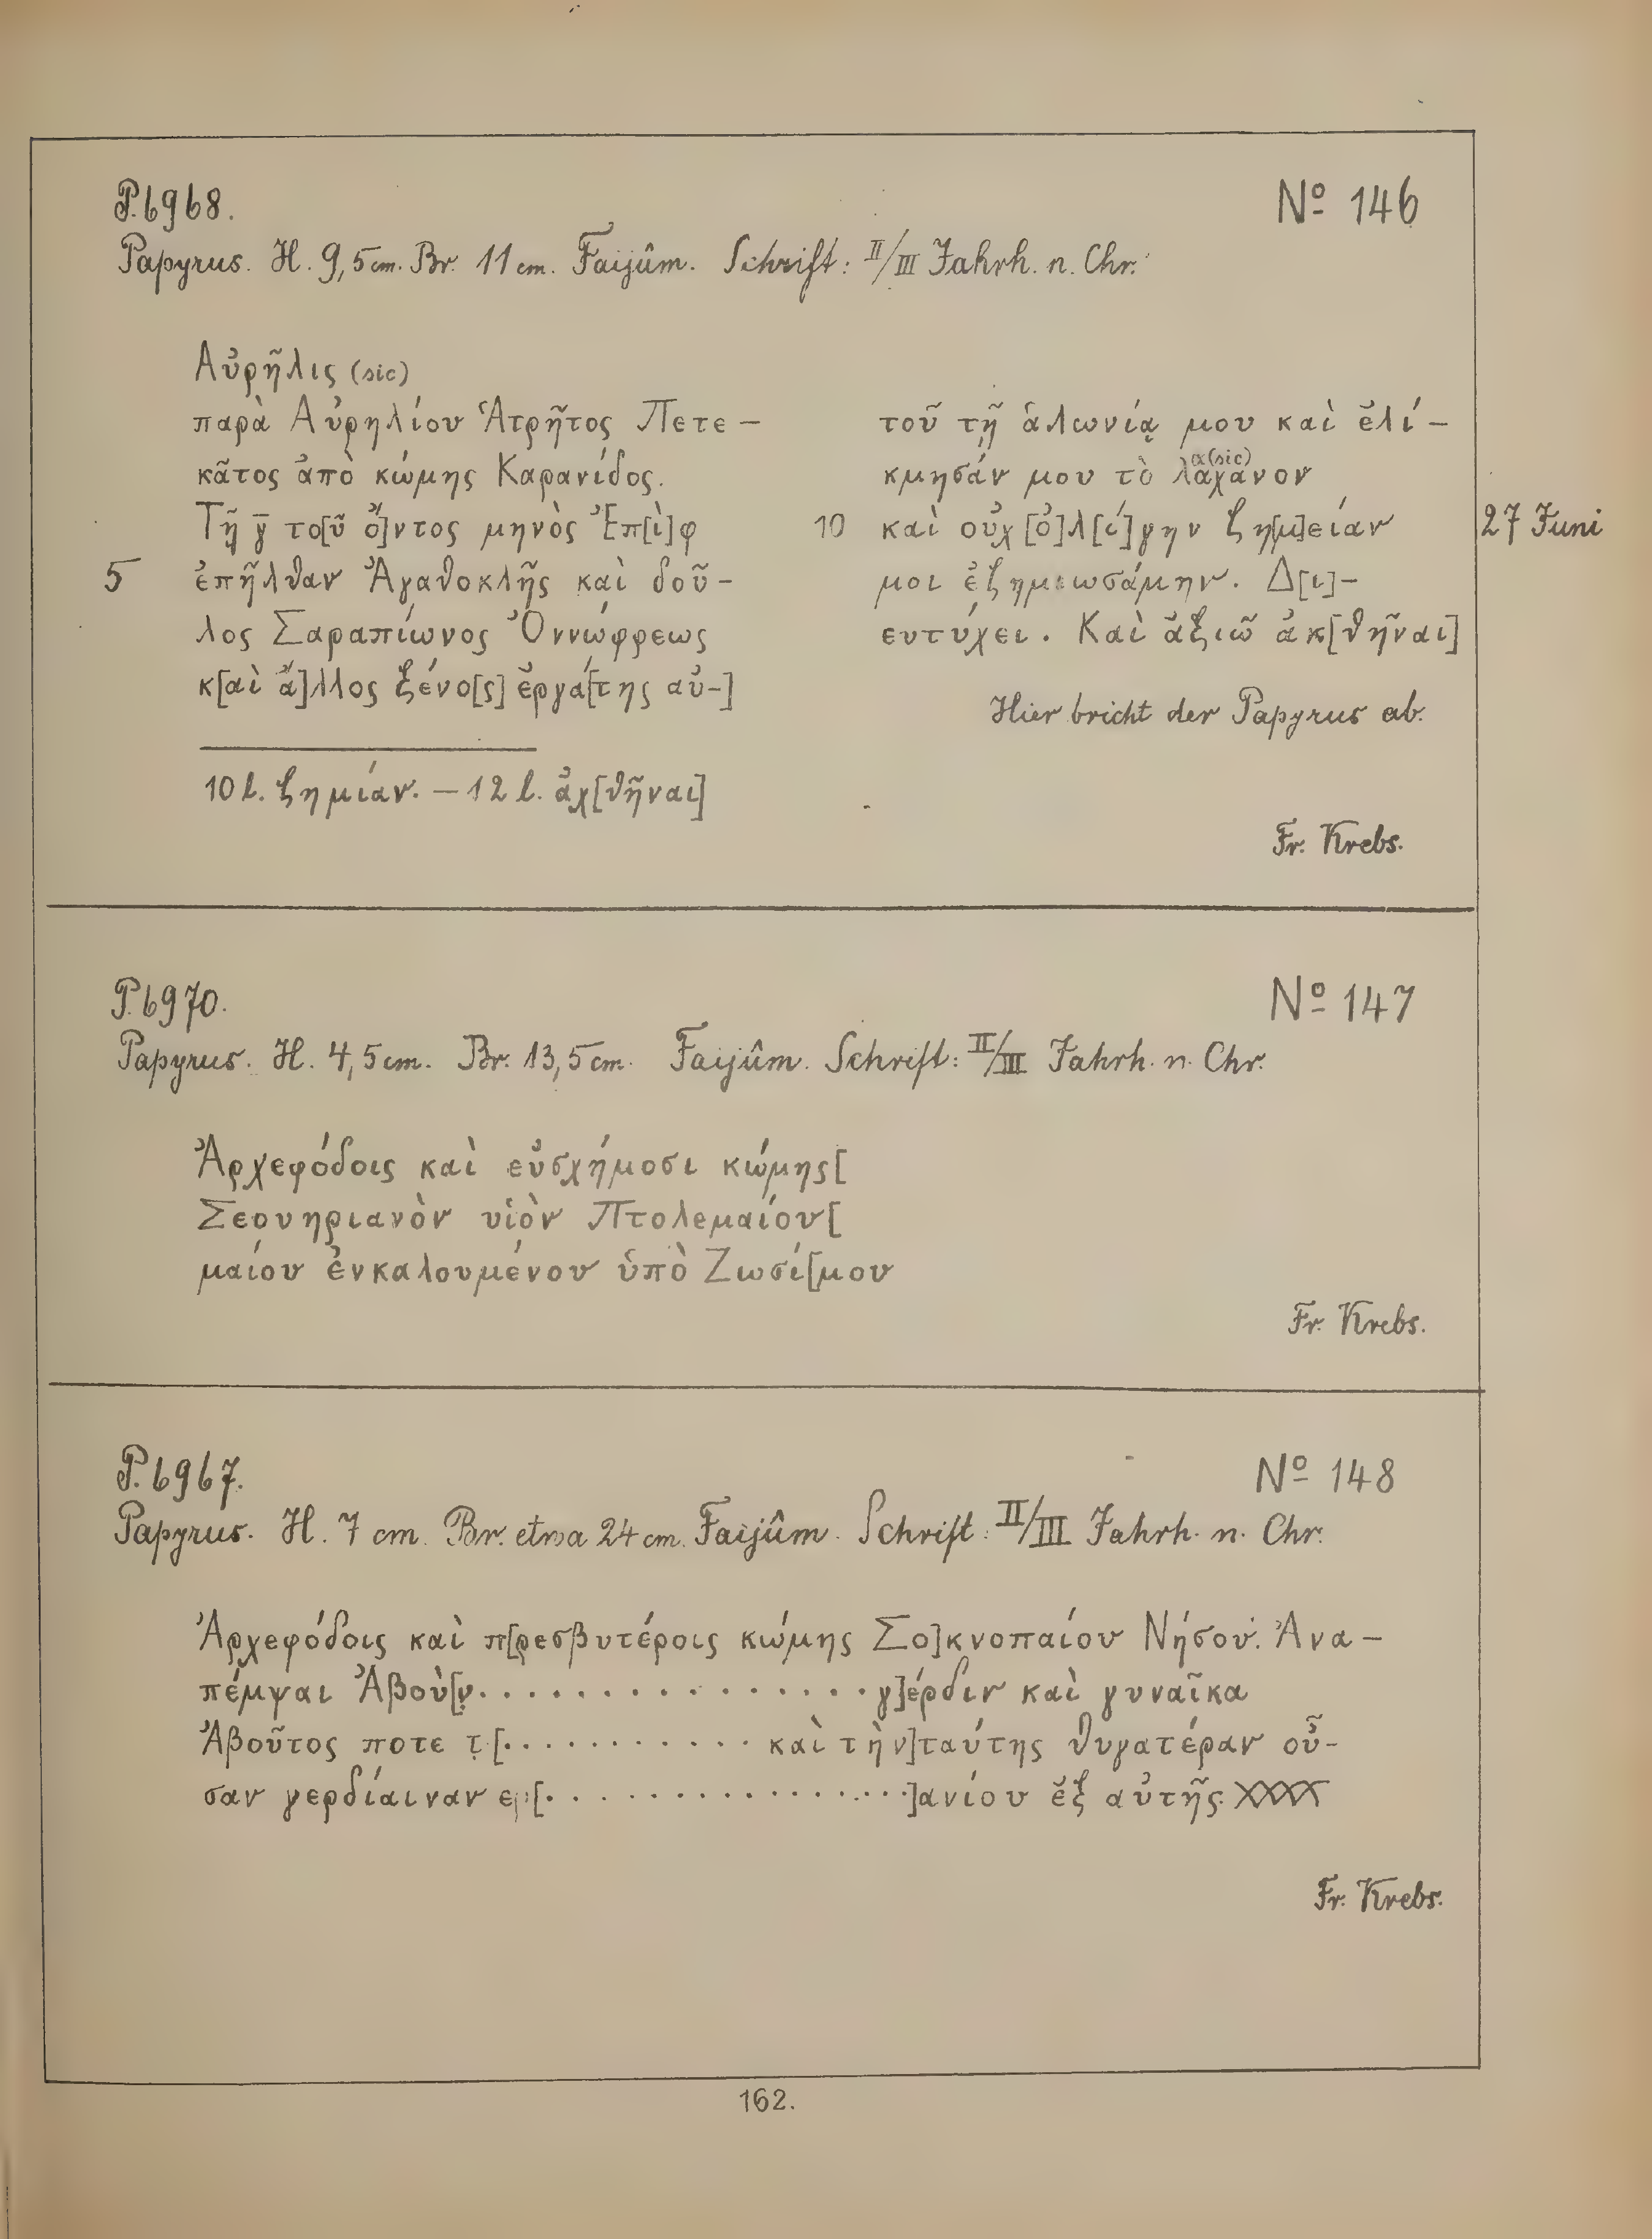 P. 6968. Nº 146
Papyrus. H. 9,5 cm. Br. 11 cm. Faijûm. Schrift: II/III Jahrh. n. Chr.
Αὐρῆλις (sic)
παρὰ Αὐρηλίου Ἁτρῆτος Πετε-
κᾶτος ἀπὸ κώμης Καρανίδος.
Τῇ γ̅ το[ῦ ὄ]ντος μηνὸς Ἐπ[ὶ]φ
5 ἐπῆλθαν Ἀγαθοκλῆς καὶ δοῦ-
λος Σαραπίωνος Ὀννώφρεως
κ[αὶ ἄ]λλος ξένο[ς] ἐργά[της αὐ-]
τοῦ τῇ ἁλωνίᾳ μου καὶ ἐλί-
κμησάν μου τὸ λαχανον
α (sic)
10 καὶ οὐχ [ὀ]λ[ί]γην ζη[μ]είαν
27 Juni
μοι ἐζημιωσάμην. Δ[ι]-
ευτύχει. Καὶ ἀξιῶ ἀκ[θῆναι]
Hier bricht der Papyrus ab.
10 l. ζημίαν. — 12 l. ἀχ[θῆναι]
Fr. Krebs.
P. 6970. Nº 147
Papyrus. H. 4,5 cm. Br. 13,5 cm. Faijûm. Schrift: II/III Jahrh. n. Chr.
Ἀρχεφόδοις καὶ εὐσχήμοσι κώμης[
Σεουηριανὸν υἱὸν Πτολεμαίου[
μαίου ἐνκαλουμένου ὑπὸ Ζωσί[μου
Fr. Krebs.
P. 6967. Nº 148
Papyrus. H. 7 cm. Br. etwa 24 cm. Faijûm. Schrift: II/III Jahrh. n. Chr.
Ἀρχεφόδοις καὶ π[ρεσβυτέροις κώμης Σο]κνοπαίου Νήσου. Ἀνα-
πέμψαι Ἀβοὺ[ν. . . . . . . . . . . . . . . . . γ]έρδιν καὶ γυναῖκα
Ἀβοῦτος ποτε τ[. . . . . . . . . . . . καὶ τὴν]ταύτης θυγατέραν οὖ-
σαν γερδίαιναν ε[. . . . . . . . . . . . . . . . .]ανίου ἐξ αὐτῆς. XXXX
Fr. Krebs.
162.